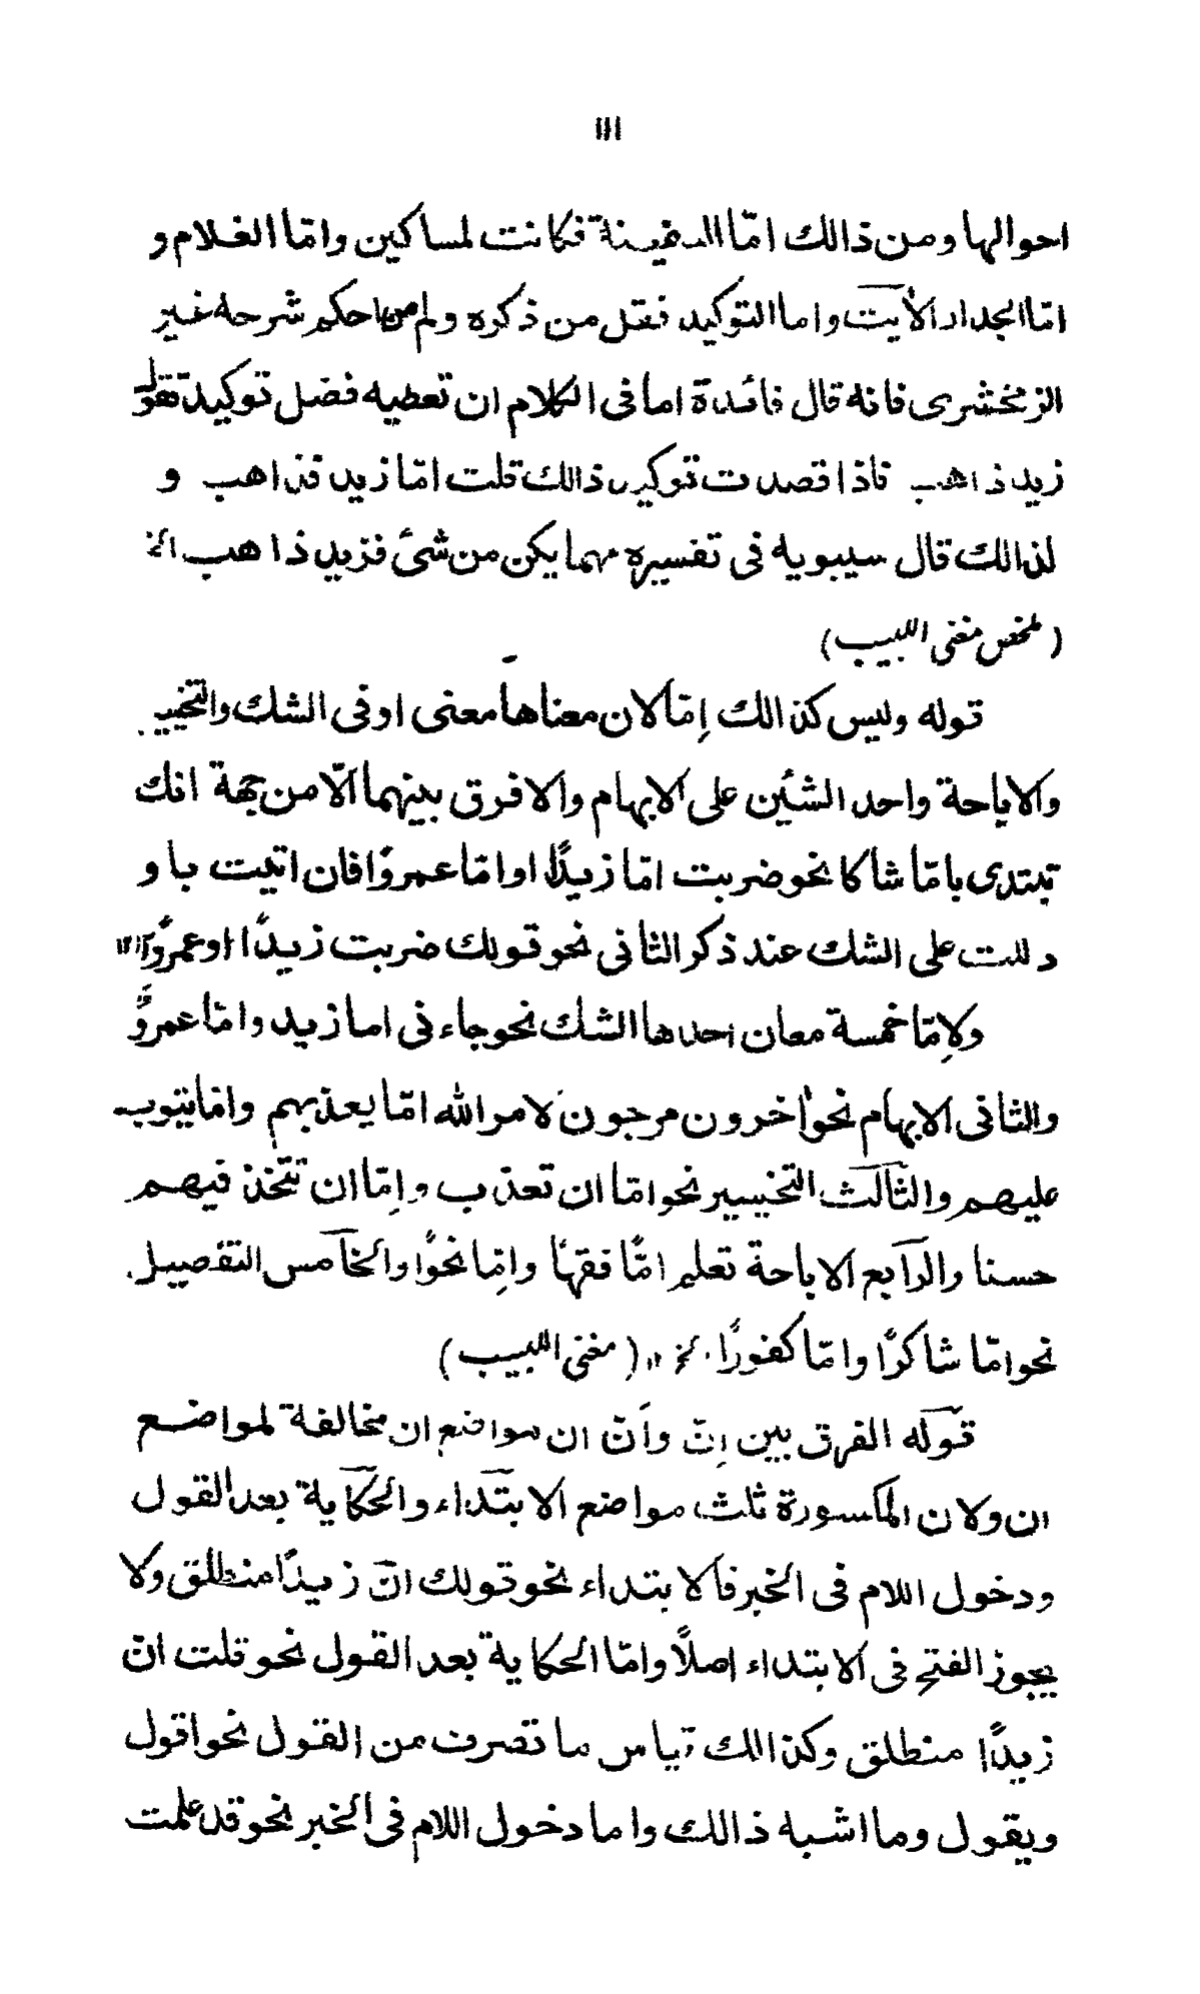 ۱۱۱
احوالها ومن ذالك امّا السفينة فكانت لمساكين وامّا الغلام و
امّا الجدار الآيت واما التوكيد فقل من ذكره ولم من احكم شرحه غير
الزمخشرى فانه قال فائدة اما فى الكلام ان تعطيه فضل توكيد تقول
زيد ذاهب فاذا قصدت توكيد ذالك قلت امّا زيد فذاهب و
لذالك قال سيبويه فى تفسيره مهما يكن من شئ فزيد ذاهب الخ
(ملخص مغنى اللبيب)
قوله وليس كذالك إمّا لان معناها معنى او فى الشك والتخيير
والاباحة واحد الشئين على الابهام والافرق بينهما الّا من جهة انك
تبتدى بامّا شاكا نحو ضربت امّا زيدًا او امّا عمروًا فان اتيت باو
دللت على الشك عند ذكر الثانى نحو قولك ضربت زيدًا او عمروًا ۱۲
ولإمّا خمسة معان احداها الشك نحو جاءنى اما زيد وامّا عمروٌ
والثانى الابهام نحو اخرون مرجون لامر الله امّا يعذبهم وامّا يتوب
عليهم والثالث التخيير نحو امّا ان تعذب وإمّا ان تتخذ فيهم
حسنا والرابع الاباحة تعلم امّا فقهًا وامّا نحوًا والخامس التفصيل
نحو امّا شاكرًا وامّا كفورًا الخ ۱۲ (مغنى اللبيب)
قوله الفرق بين إنّ وأنّ ان مواضع ان مخالفة لمواضع
ان ولان المكسورة ثلث مواضع الابتداء والحكاية بعد القول
ودخول اللام فى الخبر فالابتداء نحو قولك انّ زيدًا منطلق ولا
يجوز الفتح فى الابتداء اصلًا وامّا الحكاية بعد القول نحو قلت انّ
زيدًا منطلق وكذالك قياس ما تصرف من القول نحو اقول
ويقول وما اشبه ذالك واما دخول اللام فى الخبر نحو قد علمت